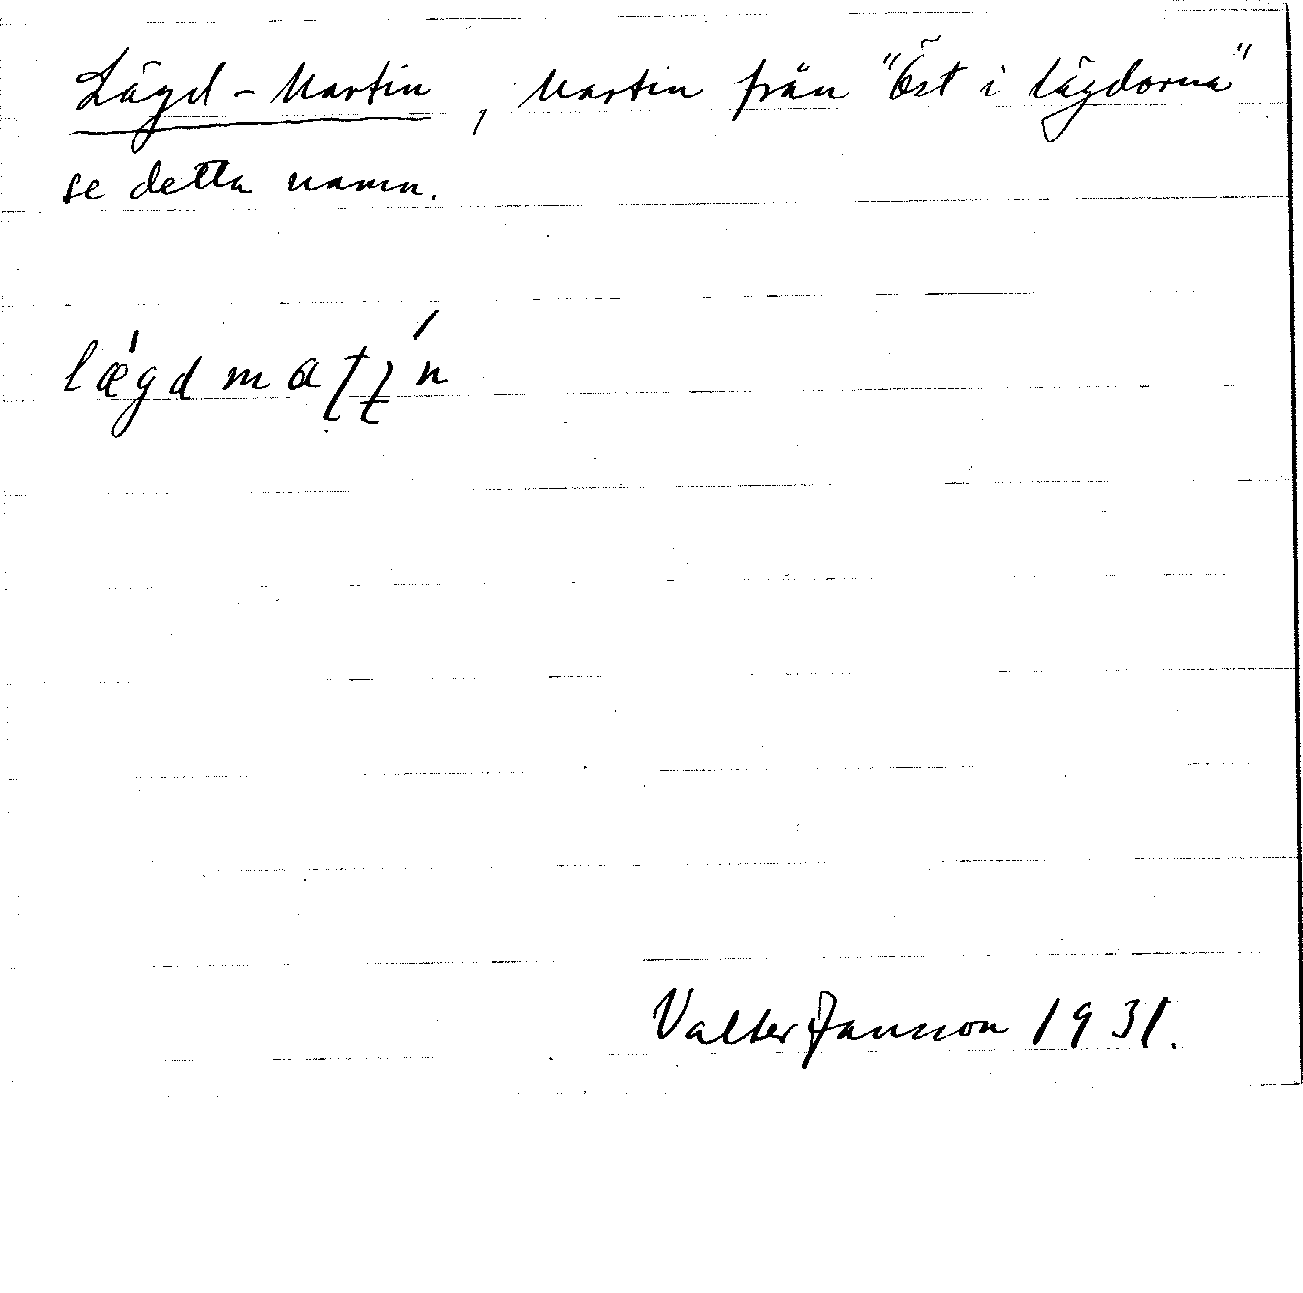 Lägd-Martin, Martin från "Öst i lägdorna"
se detta namn.
Valter Jansson 1931.